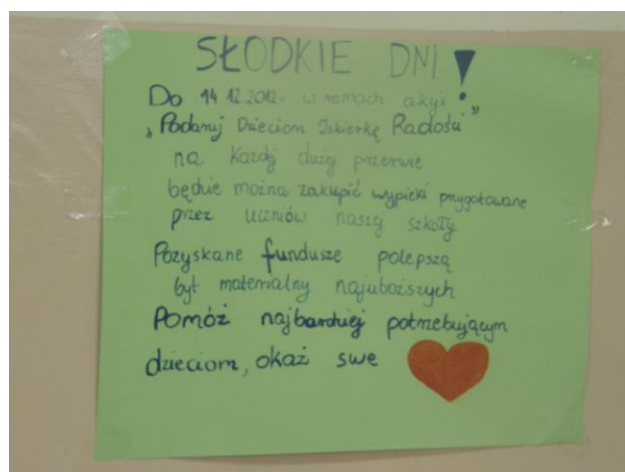 SŁODKIE DNI!
Do 14.12.2012r. w ramach akcji
„Podaruj Dzieciom Iskierkę Radości”
na każdej dużej przerwie
będzie można zakupić wypieki przygotowane
przez uczniów naszej szkoły
Pozyskane fundusze polepszą
byt materialny najuboższych
Pomóż najbardziej potrzebującym
dzieciom, okaż swe